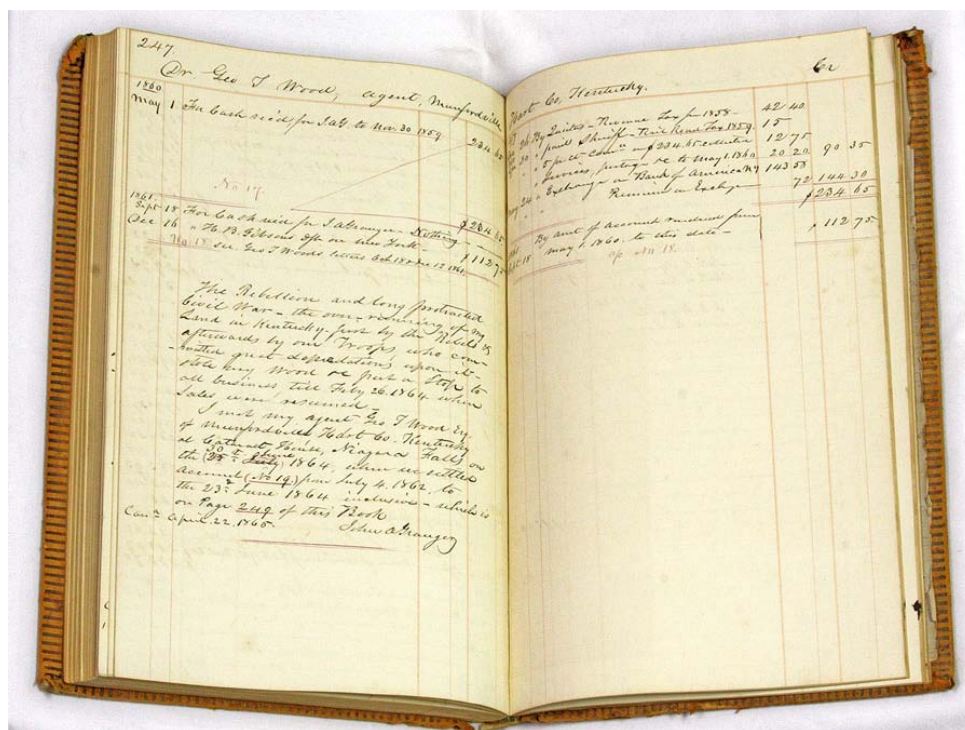 247.
Dr Geo T Wood, agent, Munfordville
1860
May 1 For Cash rec'd for J.A.G. to Nov. 30 1859 234 65
No 17.
$234 65
1861
Sept 18 For Cash rec'd for J A Granger - Nothing - -
Dec 16 " H. B. Gibsons Dft on New York - $112 75
No 18 see Geo T Woods letters Oct 18 & Dec 12 1861.
The Rebellion and long protracted
Civil War - the over-running of my
Land in Kentucky - first by the Rebels &
afterwards by our Troops, who com-
-mitted great depredations upon it -
stole my Wood &c put a Stop to
all business till Feby 26. 1864 when
Sales were resumed -
I met my agent Geo T Wood Esq.
of Munfordville Hart Co. Kentucky
at Cataract House, Niagara Falls, on
the 30th June 1864, when we settled
account (No 19.) from July 4. 1862. to
the 23d June 1864 inclusive - which is
on Page 249 of this Book
Can'a April. 22. 1865. John A Granger
Hart Co, Kentucky. Cr
26 By - Revenue Tax for 1858 - 42 40
30 " paid Sheriff - Rail Road Tax 1859. 15
" 5 pr ct Comn on $234.65 collected 12 75
" Services, postage &c to May 1. 1860 20 20 90 35
24 " Exchange on Bank of America NY 143 58
" Premium on Exchge 72 144 30
$234 65
18 By amt of account rendered from
May 1. 1860. to this date - $112 75
No 18.